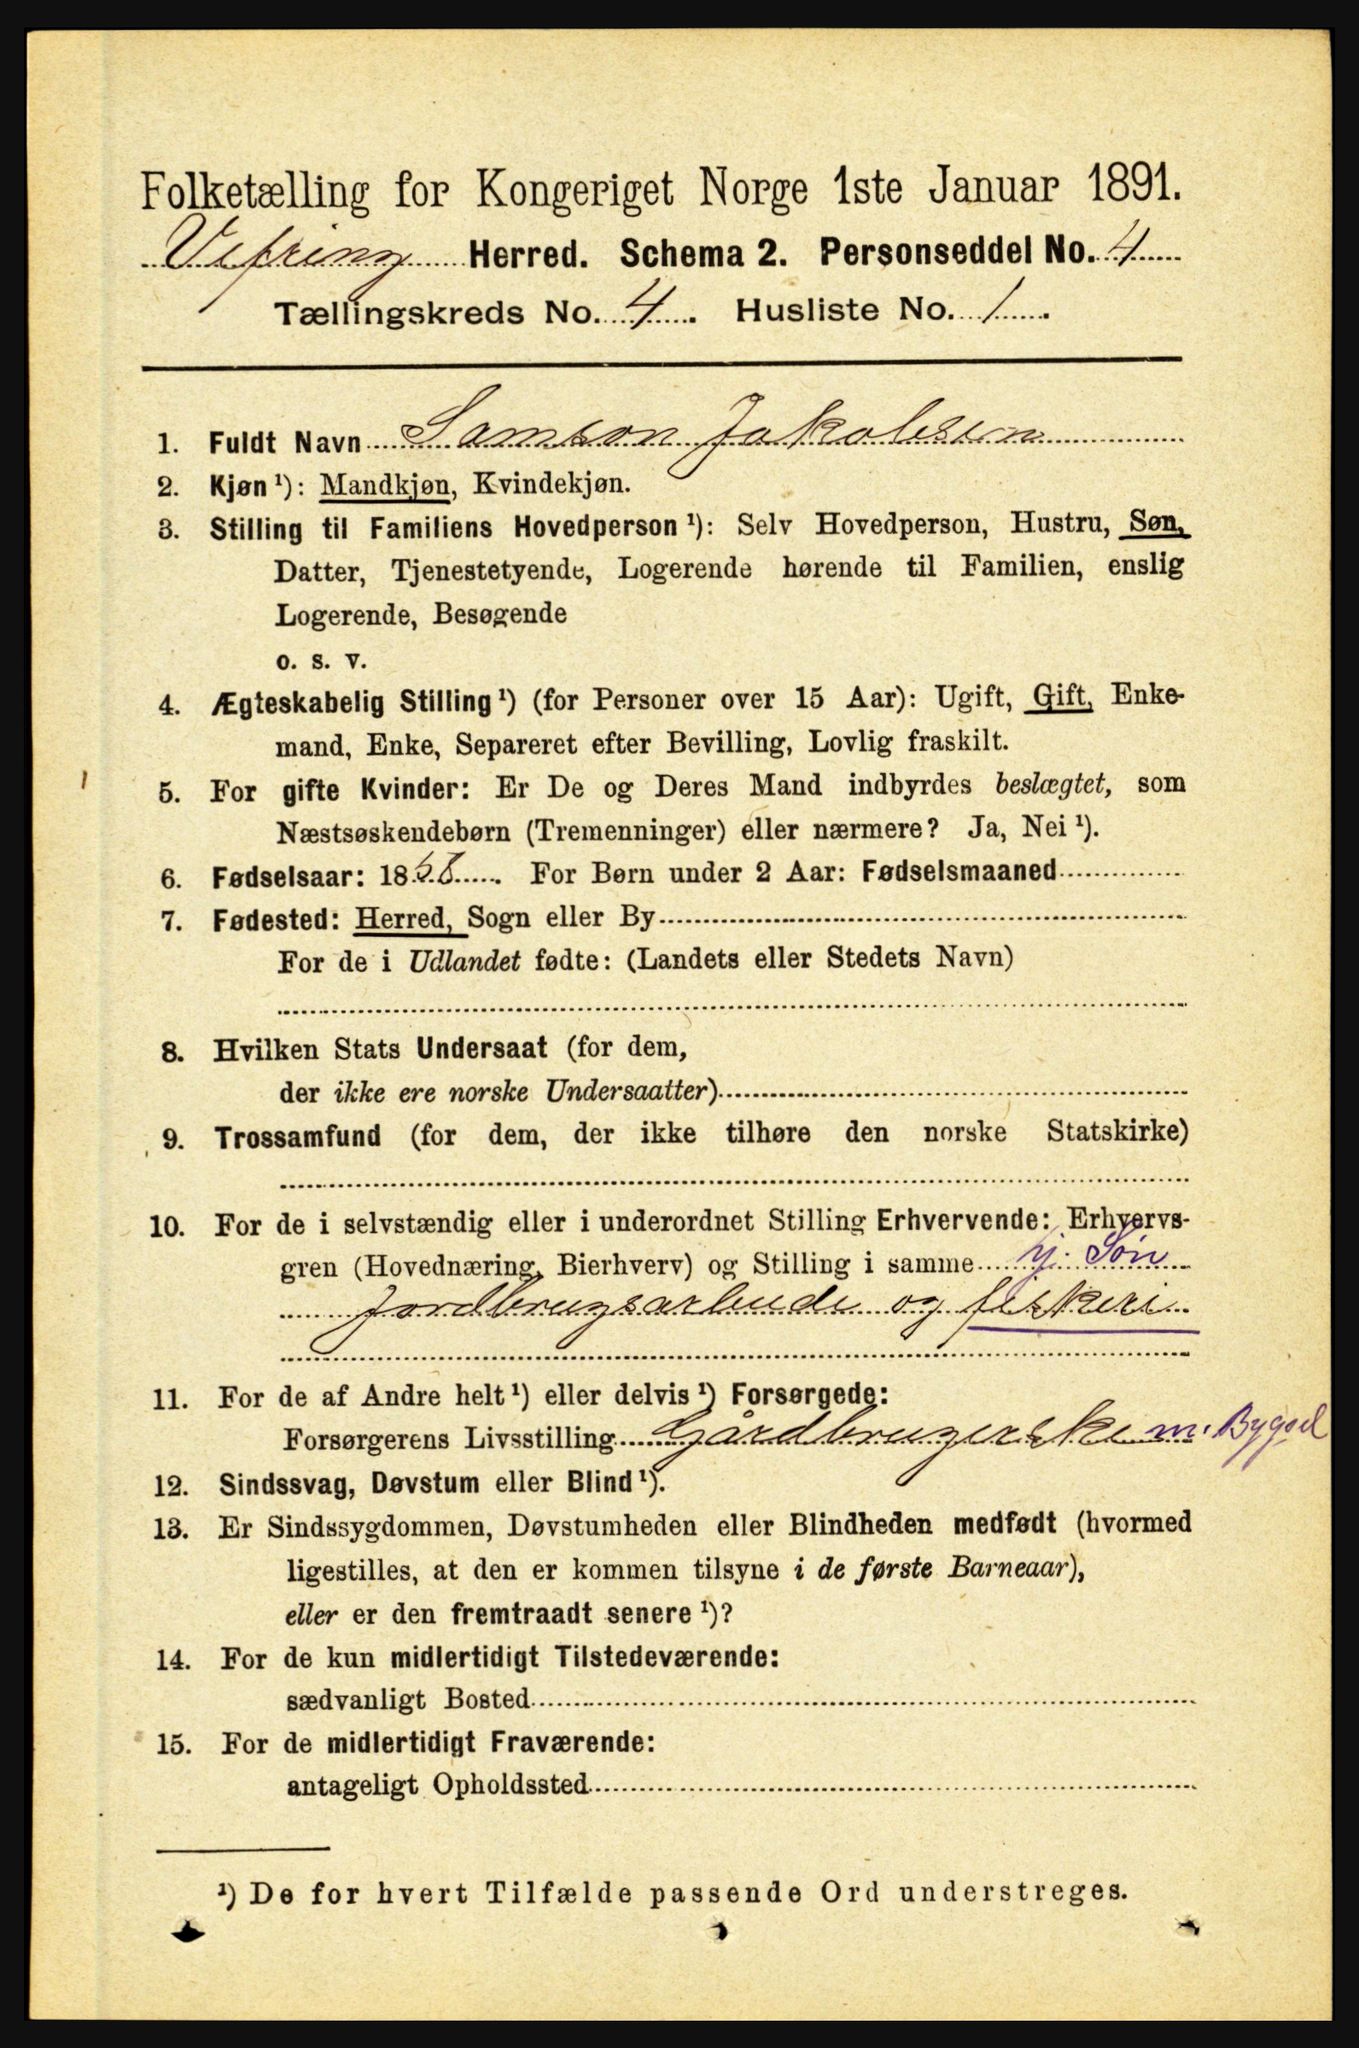 Folketælling for Kongeriget Norge 1ste Januar 1891.
Vefring Herred. Schema 2. Personseddel No. 4
Tællingskreds No. 4. Husliste No. 1.
1. Fuldt Navn Samson Jakobsen
2. Kjøn¹): Mandkjøn, Kvindekjøn.
3. Stilling til Familiens Hovedperson¹): Selv Hovedperson, Hustru, Søn,
Datter, Tjenestetyende, Logerende hørende til Familien, enslig
Logerende, Besøgende
o. s. v.
4. Ægteskabelig Stilling¹) (for Personer over 15 Aar): Ugift, Gift, Enke-
mand, Enke, Separeret efter Bevilling, Lovlig fraskilt.
5. For gifte Kvinder: Er De og Deres Mand indbyrdes beslægtet, som
Næstsøskendebørn (Tremenninger) eller nærmere? Ja, Nei¹).
6. Fødselsaar: 18. For Børn under 2 Aar: Fødselsmaaned
7. Fødested: Herred, Sogn eller By
For de i Udlandet fødte: (Landets eller Stedets Navn)
8. Hvilken Stats Undersaat (for dem,
der ikke ere norske Undersaatter)
9. Trossamfund (for dem, der ikke tilhøre den norske Statskirke)
10. For de i selvstændig eller i underordnet Stilling Erhvervende: Erhvervs-
gren (Hovednæring, Bierhverv) og Stilling i samme hj. Søn
Jordbrugsarbeide og fiskeri
11. For de af Andre helt¹) eller delvis¹) Forsørgede:
Forsørgerens Livsstilling Gårdbrugerske m. Bygsel
12. Sindssvag, Døvstum eller Blind¹).
13. Er Sindssygdommen, Døvstumheden eller Blindheden medfødt (hvormed
ligestilles, at den er kommen tilsyne i de første Barneaar),
eller er den fremtraadt senere¹)?
14. For de kun midlertidigt Tilstedeværende:
sædvanligt Bosted
15. For de midlertidigt Fraværende:
antageligt Opholdssted
¹) De for hvert Tilfælde passende Ord understreges.